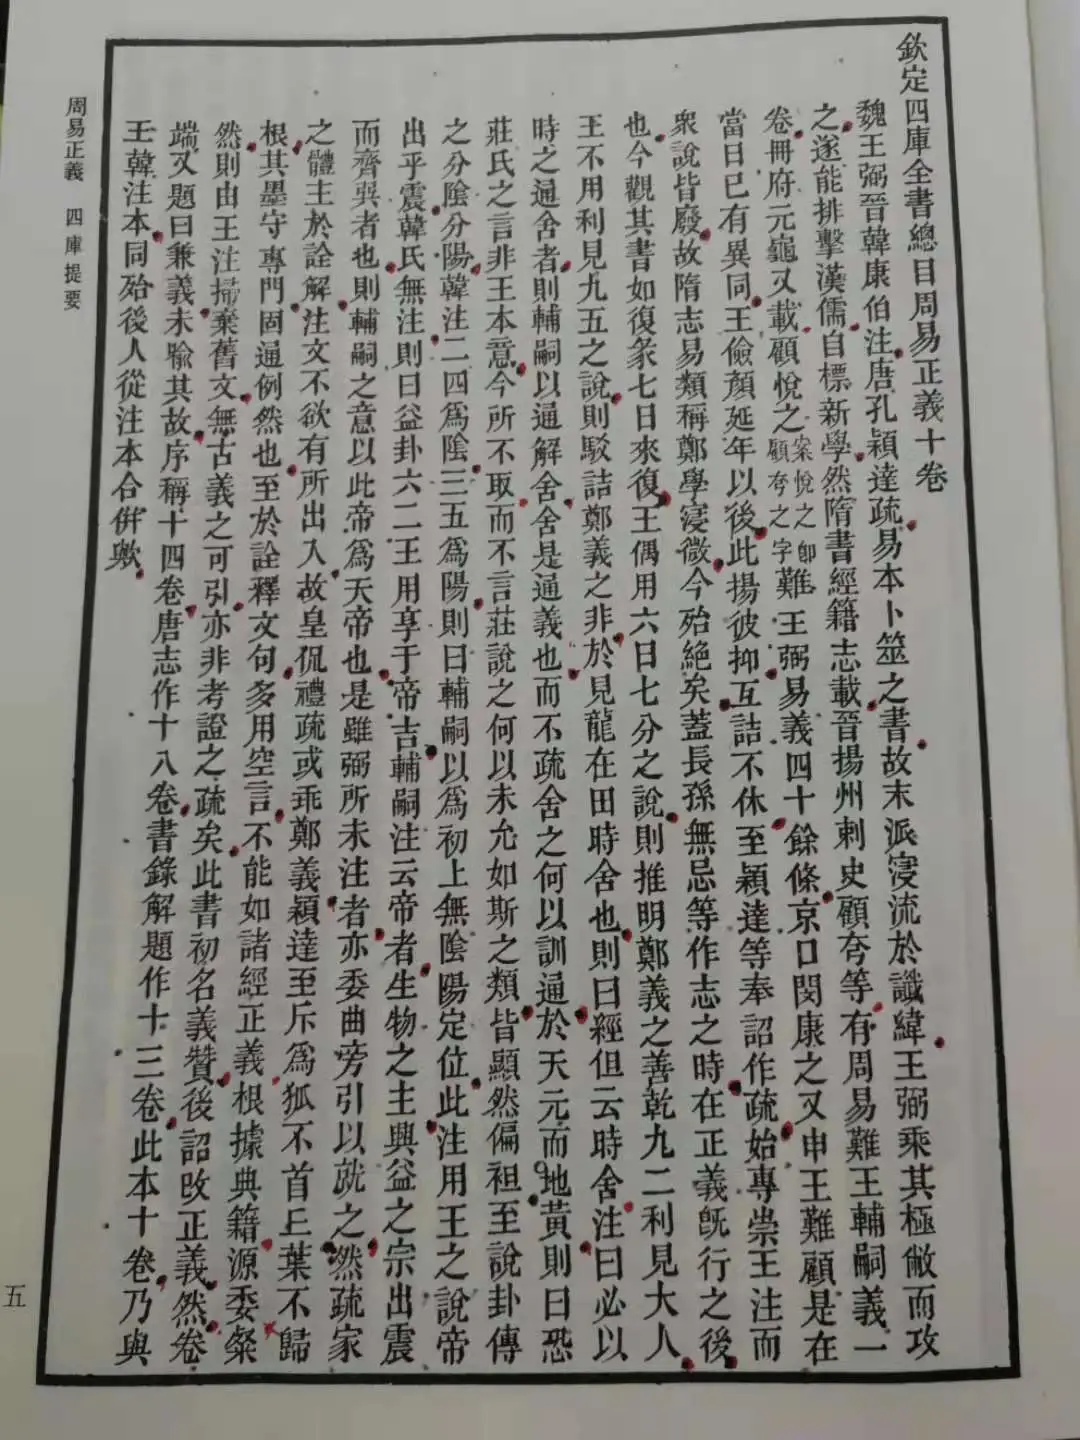 欽定四庫全書總目周易正義十卷
魏王弼晉韓康伯注唐孔穎達疏易本卜筮之書故末派寖流於讖緯王弼乘其極敝而攻
之遂能排擊漢儒自標新學然隋書經籍志載晉揚州刺史顧夸等有周易難王輔嗣義一
卷冊府元龜又載顧悅之案悅之卽顧夸之字難王弼易義四十餘條京口閔康之又申王難顧是在
當日已有異同王儉顏延年以後此揚彼抑互詰不休至穎達等奉詔作疏始專崇王注而
衆說皆廢故隋志易類稱鄭學寖微今殆絕矣蓋長孫無忌等作志之時在正義旣行之後
也今觀其書如復彖七日來復王偶用六日七分之說則推明鄭義之善乾九二利見大人
王不用利見九五之說則駁詰鄭義之非於見龍在田時舍也則曰經但云時舍注曰必以
時之通舍者則輔嗣以通解舍舍是通義也而不疏舍之何以訓通於天元而地黃則曰恐
莊氏之言非王本意今所不取而不言莊說之何以未允如斯之類皆顯然偏袒至說卦傳
之分陰分陽韓注二四爲陰三五爲陽則曰輔嗣以爲初上無陰陽定位此注用王之說帝
出乎震韓氏無注則曰益卦六二王用享于帝吉輔嗣注云帝者生物之主興益之宗出震
而齊巽者也則輔嗣之意以此帝爲天帝也是雖弼所未注者亦委曲旁引以就之然疏家
之體主於詮解注文不欲有所出入故皇侃禮疏或乖鄭義穎達至斥爲狐不首丘葉不歸
根其墨守專門固通例然也至於詮釋文句多用空言不能如諸經正義根據典籍源委粲
然則由王注掃棄舊文無古義之可引亦非考證之疏矣此書初名義贊後詔改正義然卷
端又題曰兼義未喻其故序稱十四卷唐志作十八卷書錄解題作十三卷此本十卷乃與
王韓注本同殆後人從注本合併歟
周易正義 四庫提要
五